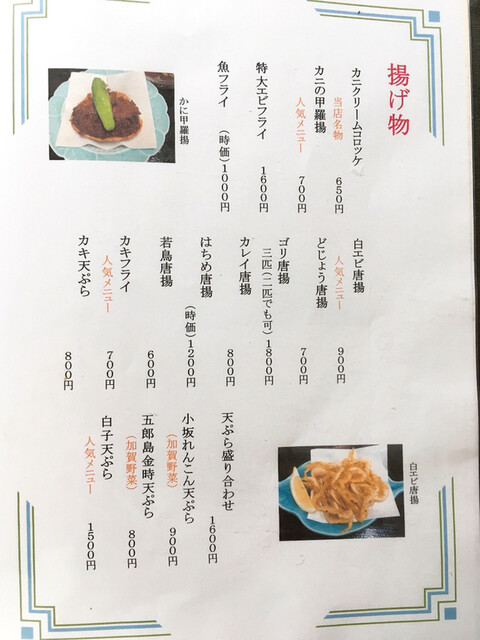 揚げ物
カニクリームコロッケ
当店名物
650円
カニの甲羅揚
人気メニュー
700円
特大エビフライ
1600円
魚フライ
(時価)1000円
かに甲羅揚
白エビ唐揚
人気メニュー
900円
どじょう唐揚
700円
ゴリ唐揚
三匹(二匹でも可)
1800円
カレイ唐揚
800円
はちめ唐揚
(時価)1200円
若鳥唐揚
600円
カキフライ
人気メニュー
700円
カキ天ぷら
800円
白エビ唐揚
天ぷら盛り合わせ
1600円
小坂れんこん天ぷら
(加賀野菜)
900円
五郎島金時天ぷら
(加賀野菜)
800円
白子天ぷら
人気メニュー
1500円